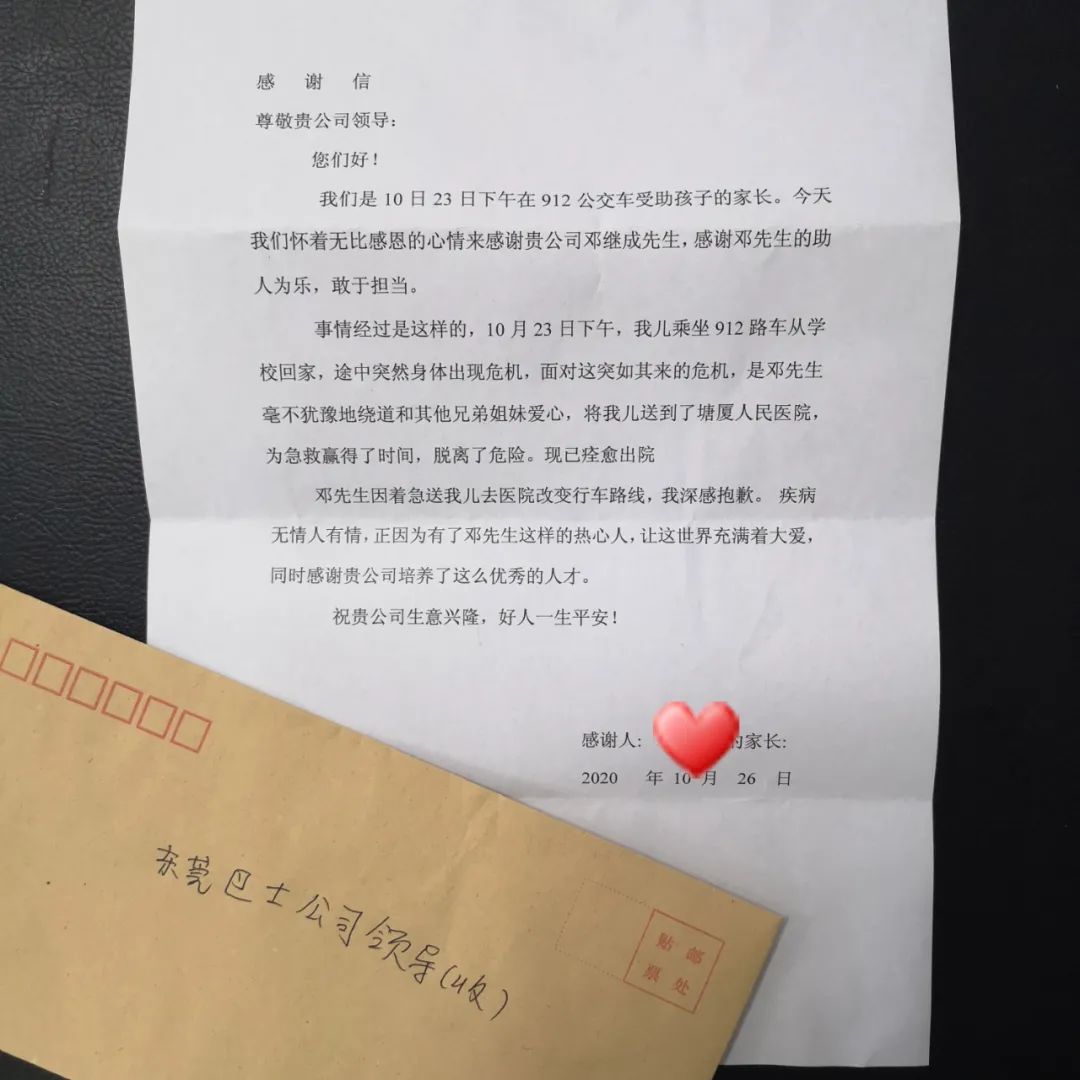 感 谢 信
尊敬贵公司领导：
您们好！
我们是 10 日 23 日下午在 912 公交车受助孩子的家长。今天
我们怀着无比感恩的心情来感谢贵公司邓继成先生，感谢邓先生的助
人为乐，敢于担当。
事情经过是这样的，10 月 23 日下午，我儿乘坐 912 路车从学
校回家，途中突然身体出现危机，面对这突如其来的危机，是邓先生
毫不犹豫地绕道和其他兄弟姐妹爱心，将我儿送到了塘厦人民医院，
为急救赢得了时间，脱离了危险。现已痊愈出院
邓先生因着急送我儿去医院改变行车路线，我深感抱歉。 疾病
无情人有情，正因为有了邓先生这样的热心人，让这世界充满着大爱，
同时感谢贵公司培养了这么优秀的人才。
祝贵公司生意兴隆，好人一生平安！
感谢人： 的家长：
2020 年 10 月 26 日
东莞巴士公司领导(收)
贴 邮
票 处